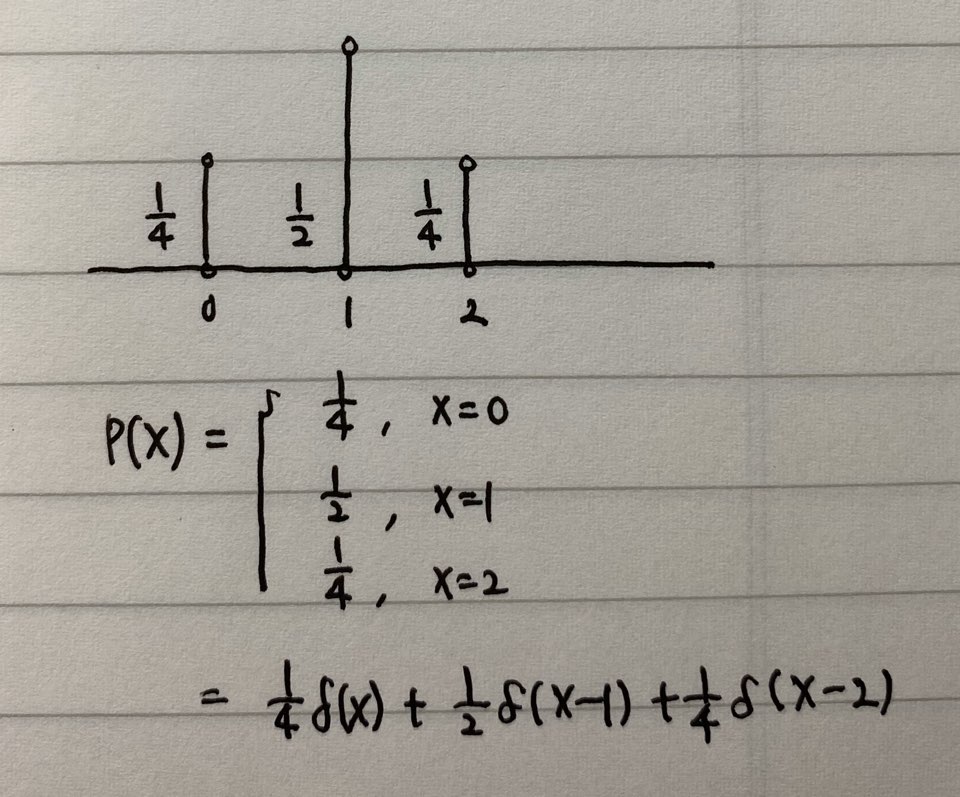 1/4 1/2 1/4
0 1 2
P(x) = { 1/4 , x=0
1/2 , x=1
1/4 , x=2
= 1/4 δ(x) + 1/2 δ(x-1) + 1/4 δ(x-2)